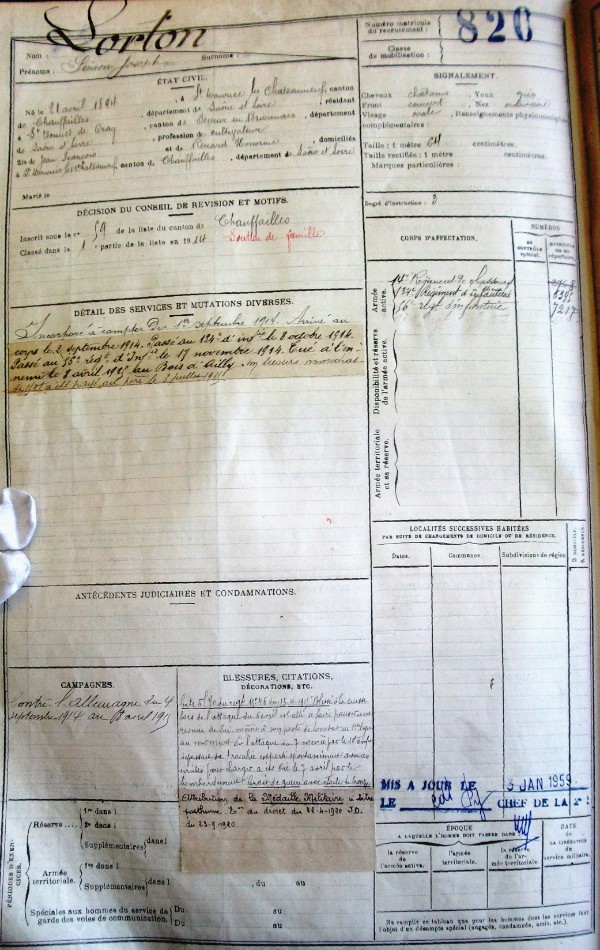 Lorton
Nom :
Prénoms : Simon Joseph
Surnoms :
Numéro matricule
du recrutement :
820
Classe
de mobilisation :
ÉTAT CIVIL.
Né le 21 avril 1894, à St Maurice les Chateauneuf, canton
de Chauffailles, département de Saône et Loire, résidant
à St de canton de Semur en Brionnais, département
de Saône et Loire, profession de cultivateur
fils de Jean François et de Renard domiciliés
à St Maurice les Chateauneuf, canton de Chauffailles, département de Saône et Loire
Marié le
SIGNALEMENT.
Cheveux châtains, Yeux gris
Front Nez
Visage ovale, Renseignements physionomiques
complémentaires :
Taille : 1 mètre 64 centimètres.
Taille rectifiée : 1 mètre centimètres.
Marques particulières :
Degré d'instruction : 3
DÉCISION DU CONSEIL DE REVISION ET MOTIFS.
Inscrit sous le n° 59 de la liste du canton de Chauffailles
Classé dans la 1e partie de la liste en 1914 Soutien de famille
DÉTAIL DES SERVICES ET MUTATIONS DIVERSES.
Incorporé à compter du 1er septembre 1914. Arrivé au
corps le 2 septembre 1914. Passé au 134e d'infie le 8 octobre 1914.
Passé au 56e régt d'Infie le 17 novembre 1914. Tué à l'en-
nemi le 8 avril 1915 au Bois d'Ailly. Un secours immédiat
de 150f a été payé au père le 2 juillet 1915
CORPS D'AFFECTATION.
NUMÉROS
au
contrôle
spécial.
matricule
ou au
répertoire.
Armée
active.
Régiment de
134e Régiment d'infanterie
56e régt d'infanterie
7217
Disponibilité et réserve
de l'armée active.
Armée territoriale
et sa réserve.
LOCALITÉS SUCCESSIVES HABITÉES
PAR SUITE DE CHANGEMENTS DE DOMICILE OU DE RÉSIDENCE.
Dates.
Communes.
Subdivisions de région
D. DOMICILE.
R. RÉSIDENCE.
ANTÉCÉDENTS JUDICIAIRES ET CONDAMNATIONS.
CAMPAGNES.
Contre l'Allemagne du 4
septembre 1914 au 8 avril 1915
BLESSURES, CITATIONS,
DÉCORATIONS, ETC.
lors de l'attaque du
au moment de l'attaque du 7
a été tué le 7 avril par le
bombardement. Croix de guerre avec étoile de bronze
Attribution de la Médaille Militaire à titre
posthume du décret du J.O.
du 23.9.1920
MIS A JOUR LE 3 JAN 1959
LE CHEF DE LA 2e S
PÉRIODES D'EXER-
CICES.
Réserve ....
1re dans l
2e dans l
Supplémentaires dans l
Armée
territoriale.
1re dans l
Supplémentaires dans l
, du au
Spéciales aux hommes du service de
garde des voies de communication.
Du au
Du au
ÉPOQUE
A LAQUELLE L'HOMME DOIT PASSER DANS
la réserve
de l'armée active.
l'armée
territoriale.
la réserve
de l'ar-
mée territoriale.
DATE
de
LA LIBÉRATION
du
service militaire.
Ne remplir ce tableau que pour les hommes dont les services font
l'objet d'un décompte spécial (engagés, condamnés, omis, etc.).